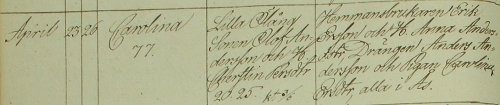 April 23 26 Carolina
77.
Lilla Stång
Sonen Olof An-
dersson och H.
Kjerstin Persdtr
20. 25. kt 36
Hemmansbrukaren Erik
Ersson och H. Anna Anders-
dtr, Drängen Anders An-
dersson och Pigan Carolina
Ersdtr, alla i Ås.